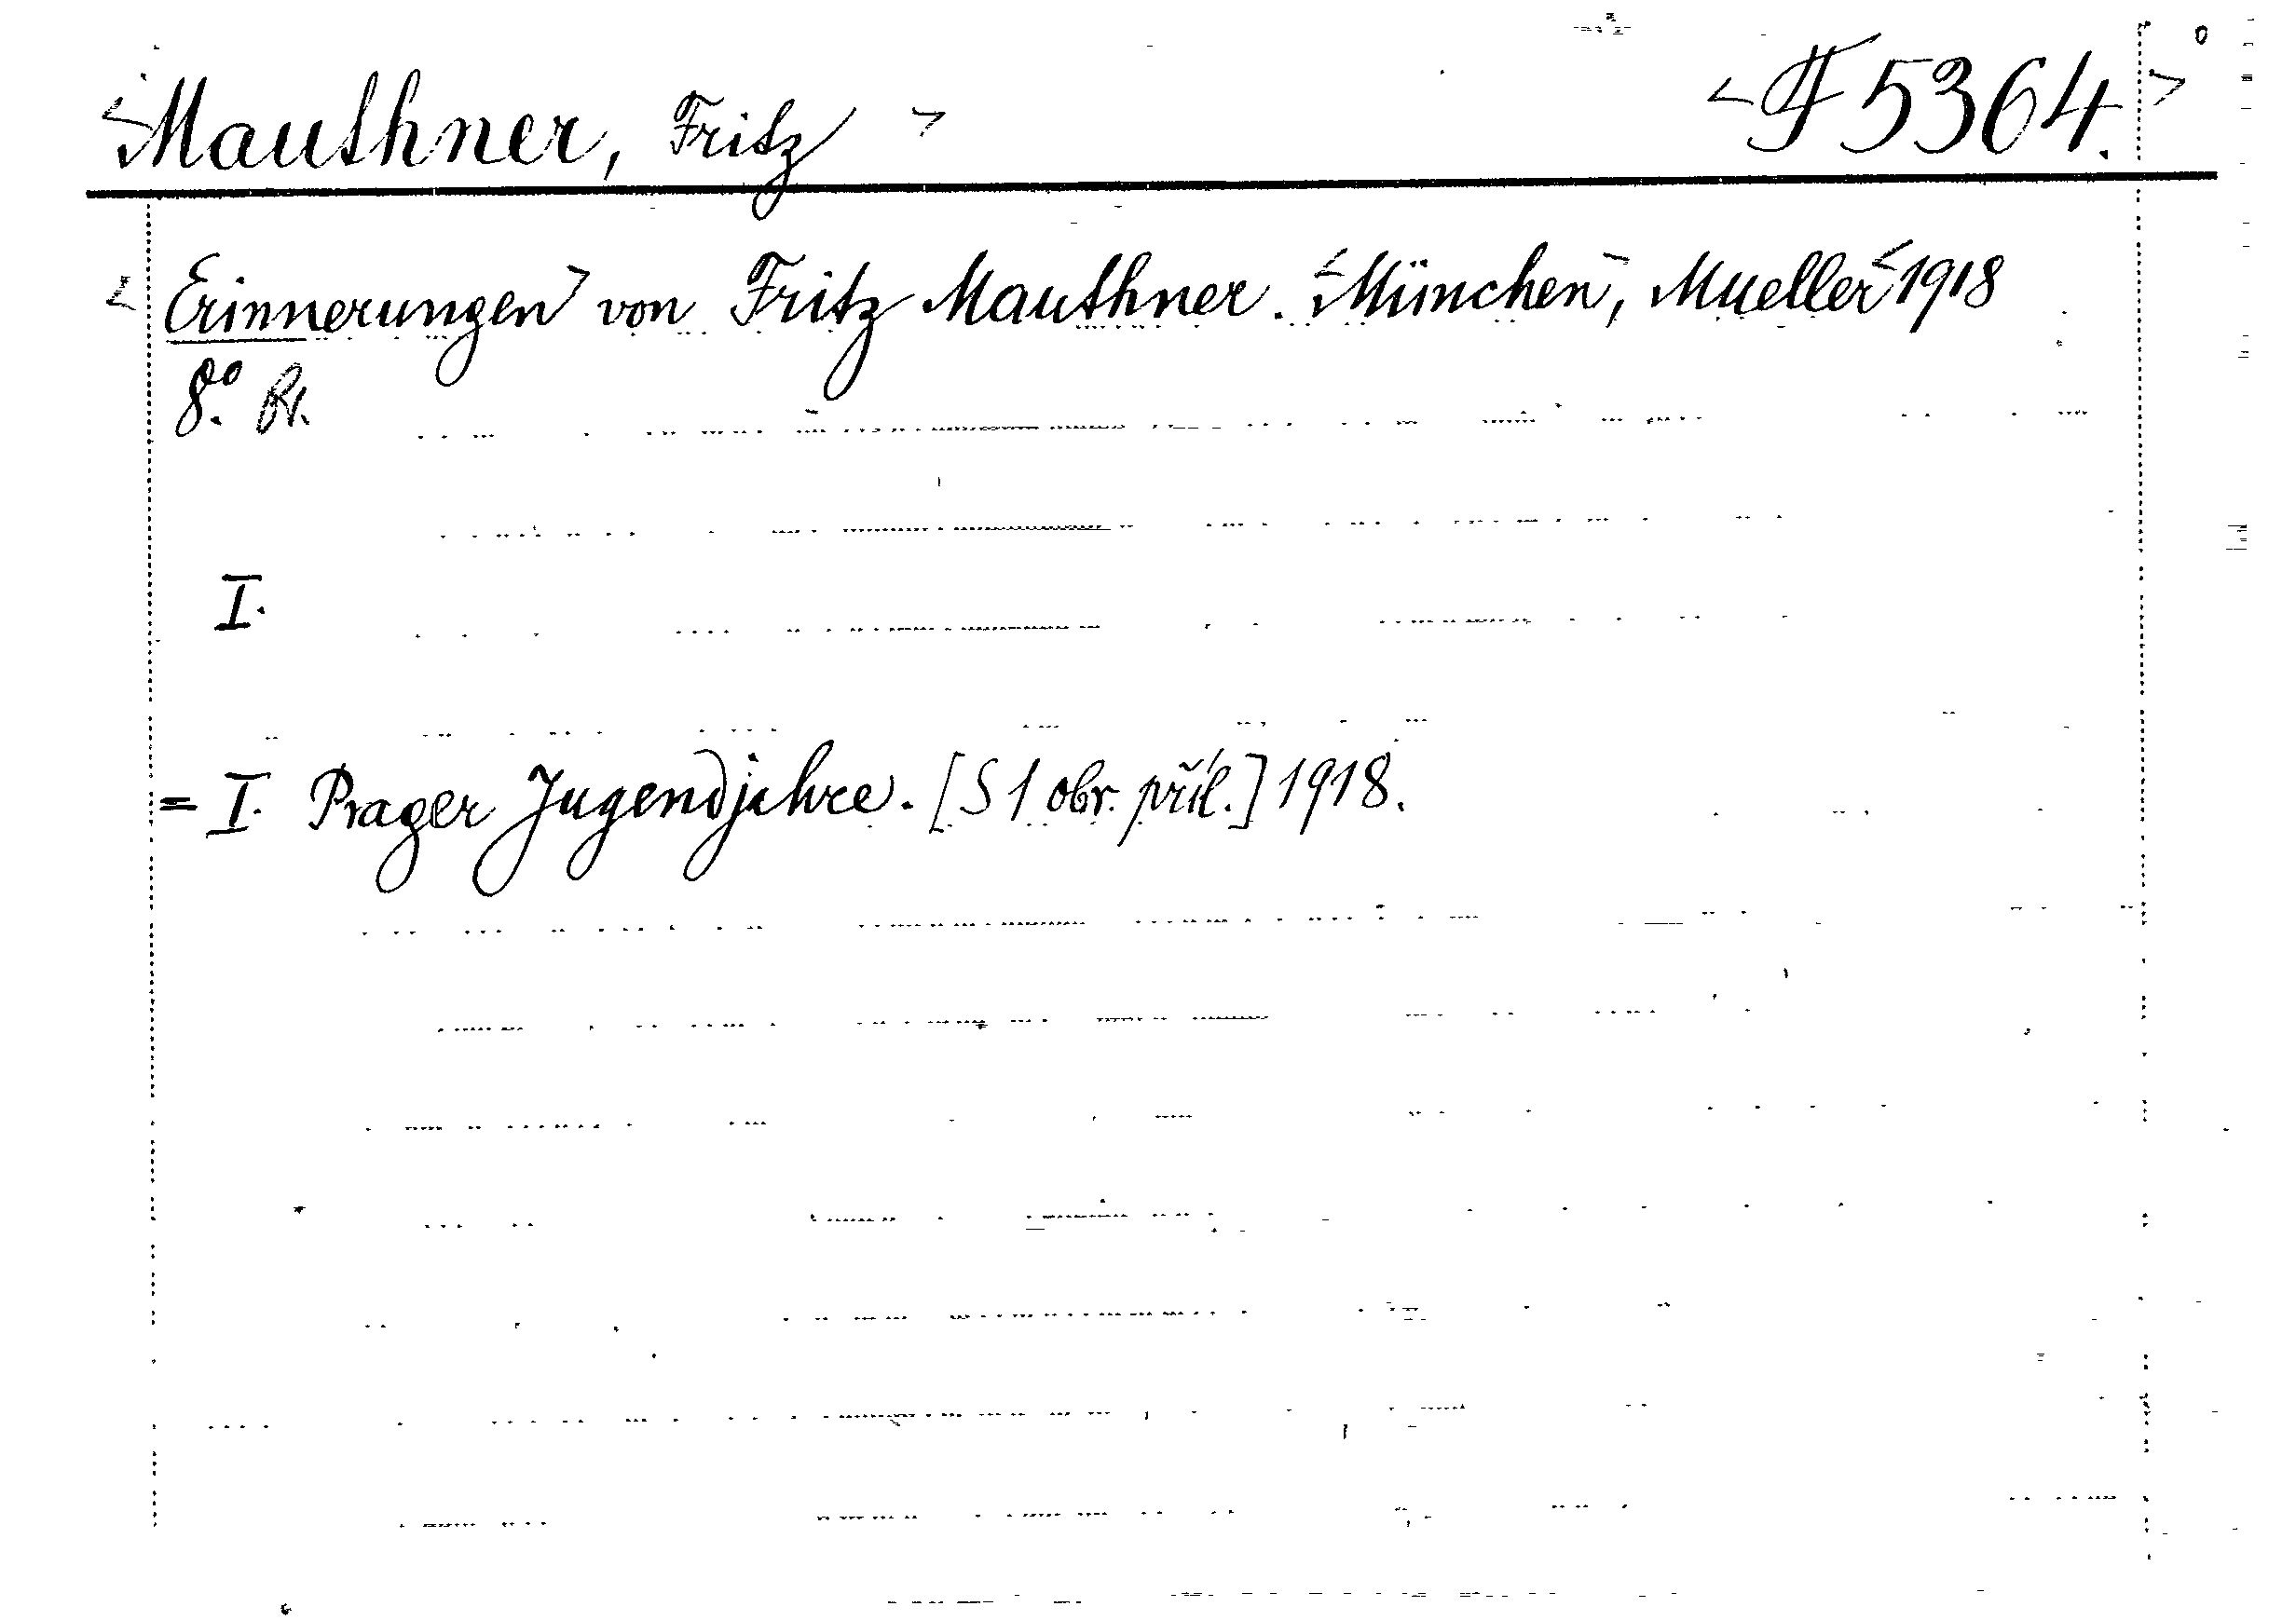 <Mauthner, Fritz> <F 5364.>
<Erinnerungen> von Fritz Mauthner. <München>, Mueller <1918
8°.
I.
= I. Prager Jugendjahre. [S 1 obr. příl.] 1918.